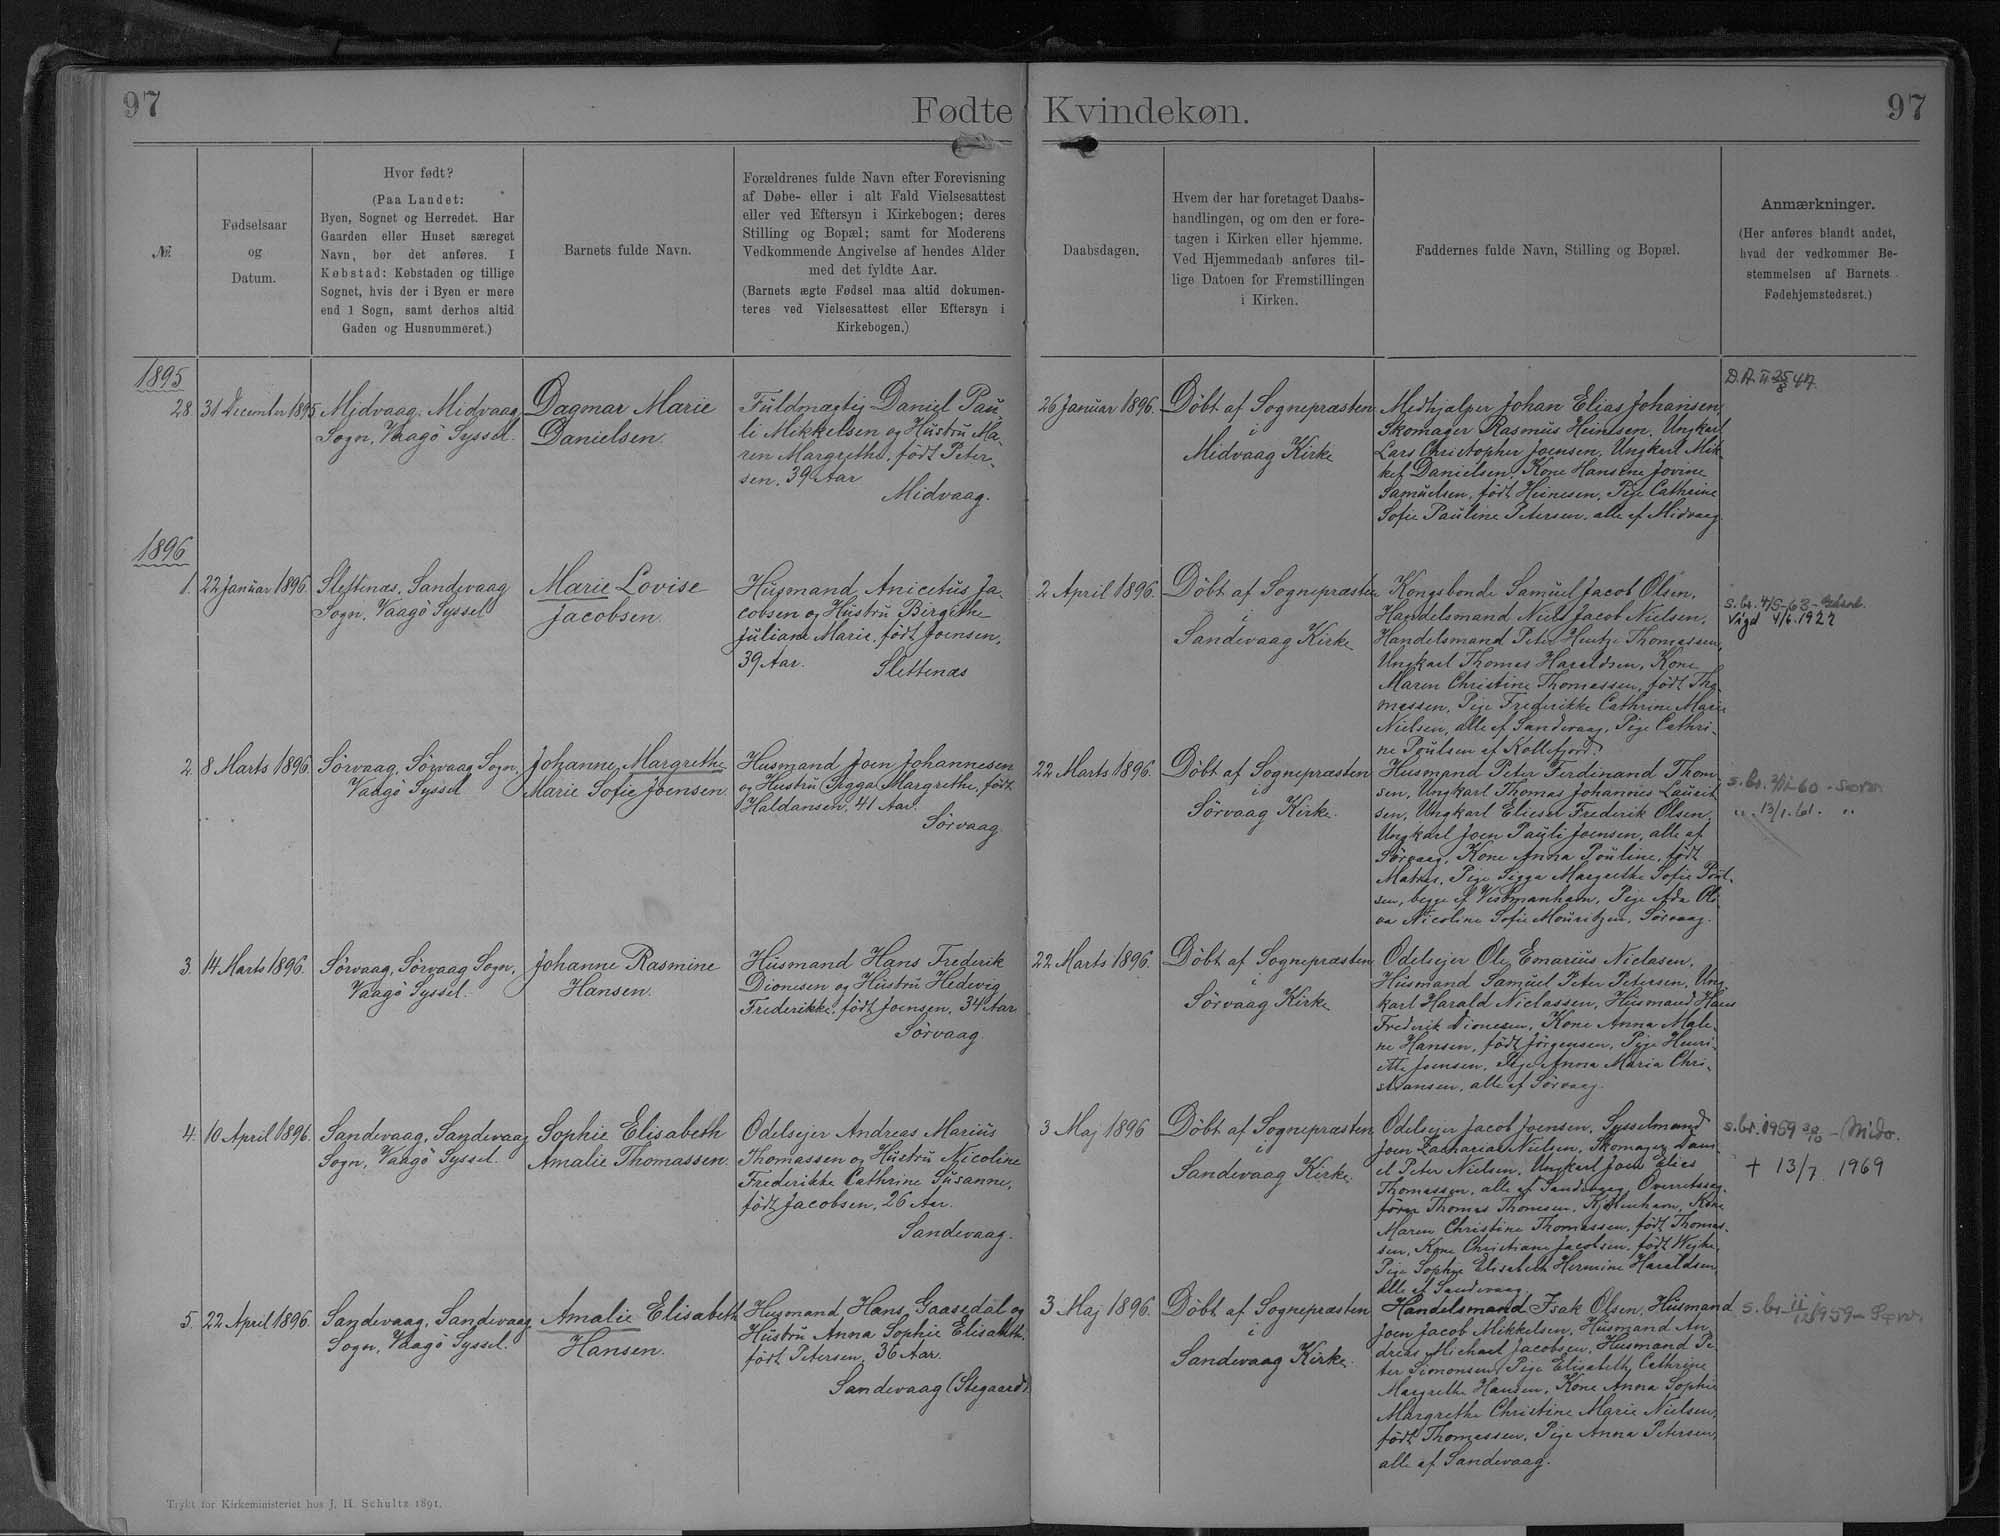 97
Fødte
Kvindekøn.
97
№
Fødselsaar
og
Datum.
Hvor født?
(Paa Landet:
Byen, Sognet og Herredet. Har
Gaarden eller Huset særeget
Navn, bør det anføres. I
Købstad: Købstaden og tillige
Sognet, hvis der i Byen er mere
end 1 Sogn, samt derhos altid
Gaden og Husnummeret.)
Barnets fulde Navn.
Forældrenes fulde Navn efter Forevisning
af Døbe- eller i alt Fald Vielsesattest
eller ved Eftersyn i Kirkebogen; deres
Stilling og Bopæl; samt for Moderens
Vedkommende Angivelse af hendes Alder
med det fyldte Aar.
(Barnets ægte Fødsel maa altid dokumen-
teres ved Vielsesattest eller Eftersyn i
Kirkebogen.)
Daabsdagen.
Hvem der har foretaget Daabs-
handlingen, og om den er fore-
tagen i Kirken eller hjemme.
Ved Hjemmedaab anføres til-
lige Datoen for Fremstillingen
i Kirken.
Faddernes fulde Navn, Stilling og Bopæl.
Anmærkninger.
(Her anføres blandt andet,
hvad der vedkommer Be-
stemmelsen af Barnets
Fødehjemstedsret.)
1895
28.
31 December 1895
Midvaag, Midvaag
Sogn, Vaagö Syssel.
Dagmar Marie
Danielsen.
Fuldmægtig Daniel Pau-
li Mikkelsen og Hustru Ma-
ren Margrethe, født Peter-
sen. 39 Aar
Midvaag.
26 Januar 1896.
Döbt af Sognepræsten
i
Midvaag Kirke
Medhjælper Johan Elias Johansen,
Skomager Rasmus Heinesen, Ungkarl
Lars Christopher Joensen, Ungkarl Mik-
kel Danielsen, Kone Hansine Jovine
Samuelsen, født Heinesen, Pige Cathrine
Sofie Pauline Petersen, alle af Midvaag
D.A. II 25/8 47.
1896
1.
22 Januar 1896.
Slettenæs, Sandevaag
Sogn, Vaagö Syssel
Marie Lovise
Jacobsen.
Husmand Anicetus Ja-
cobsen og Hustru Birgithe
Juliane Marie, født Joensen,
39 Aar.
Slettenæs
2 April 1896.
Döbt af Sognepræsten
i
Sandevaag Kirke
Kongsbonde Samuel Jacob Olsen,
Handelsmand Niels Jacob Nielsen,
Handelsmand Peter Hentze Thomassen,
Ungkarl Thomas Haraldsen, Kone
Maren Christine Thomassen, født Tho-
massen, Pige Frederikke Cathrine Marie
Nielsen, alle af Sandevaag, Pige Cathri-
ne Poulsen af Kollefjord.
s. br. 4/5-63
Vigd 4/6.1922
2.
8 Marts 1896.
Sörvaag, Sörvaag Sogn,
Vaagö Syssel
Johanne Margrethe
Marie Sofie Joensen.
Husmand Joen Johannesen
og Hustru Sigga Margrethe, født
Haldansen, 41 Aar.
Sörvaag.
22 Marts 1896.
Döbt af Sognepræsten
i
Sörvaag Kirke.
Husmand Peter Ferdinand Thom-
sen, Ungkarl Thomas Johannus Laurit-
sen, Ungkarl Elieser Frederik Olsen,
Ungkarl Joen Pauli Joensen, alle af
Sörvaag, Kone Anna Pouline, født
Matras, Pige Sigga Margrethe Sofie Poul-
sen, begge af Vestmanhavn, Pige Ada Oli-
va Nicoline Sofie Mouritzen, Sörvaag.
" " 13/1. 61. "
3.
14 Marts 1896.
Sörvaag, Sörvaag Sogn,
Vaagö Syssel.
Johanne Rasmine
Hansen.
Husmand Hans Frederik
Dionesen og Hustru Hedevig
Frederikke, født Joensen, 34 Aar
Sörvaag
22 Marts 1896.
Döbt af Sognepræsten
i
Sörvaag Kirke
Odelsejer Ole Emarius Niclasen,
Husmand Samuel Peter Petersen, Ung-
karl Harald Niclassen, Husmand Hans
Frederik Dionesen, Kone Anna Male-
ne Hansen, født Jörgensen, Pige Henri-
ette Joensen, Pige Anna Maria Chri-
stiansen, alle af Sörvaag.
4.
10 April 1896.
Sandevaag, Sandevaag
Sogn, Vaagö Syssel.
Sophie Elisabeth
Amalie Thomassen.
Odelsejer Andreas Marius
Thomassen og Hustru Nicoline
Frederikke Cathrine Susanne,
født Jacobsen, 26 Aar.
Sandevaag.
3 Maj 1896
Döbt af Sognepræsten
i
Sandevaag Kirke.
Odelsejer Jacob Joensen, Sysselmand
Joen Zacharias Nielsen, Skomager Dani-
el Peter Nielsen, Ungkarl Joen Elies
Thomassen, alle af Sandevaag, Overretssag-
förer Thomas Thomsen, Kjöbenhavn, Kone
Maren Christine Thomassen, født Thomas-
sen, Kone Christiane Jacobsen, født Weihe,
Pige Sophie Elisabeth Hermine Haraldsen,
alle af Sandevaag.
+ 13/7 1969
5.
22 April 1896.
Sandevaag, Sandevaag
Sogn, Vaagö Syssel.
Amalie Elisabeth
Hansen.
Husmand Hans Gaasedal og
Hustru Anna Sophie Elisabeth,
født Petersen, 36 Aar.
Sandevaag (Stegaard)
3 Maj 1896.
Döbt af Sognepræsten
i
Sandevaag Kirke.
Handelsmand Isak Olsen, Husmand
Joen Jacob Mikkelsen, Husmand An-
dreas Michael Jacobsen, Husmand Pe-
ter Simonsen, Pige Elisabeth Cathrine
Margrethe Hansen, Kone Anna Sophie
Margrethe Christine Marie Nielsen,
født Thomassen, Pige Anna Petersen,
alle af Sandevaag.
Trykt for Kirkeministeriet hos J. H. Schultz 1891.